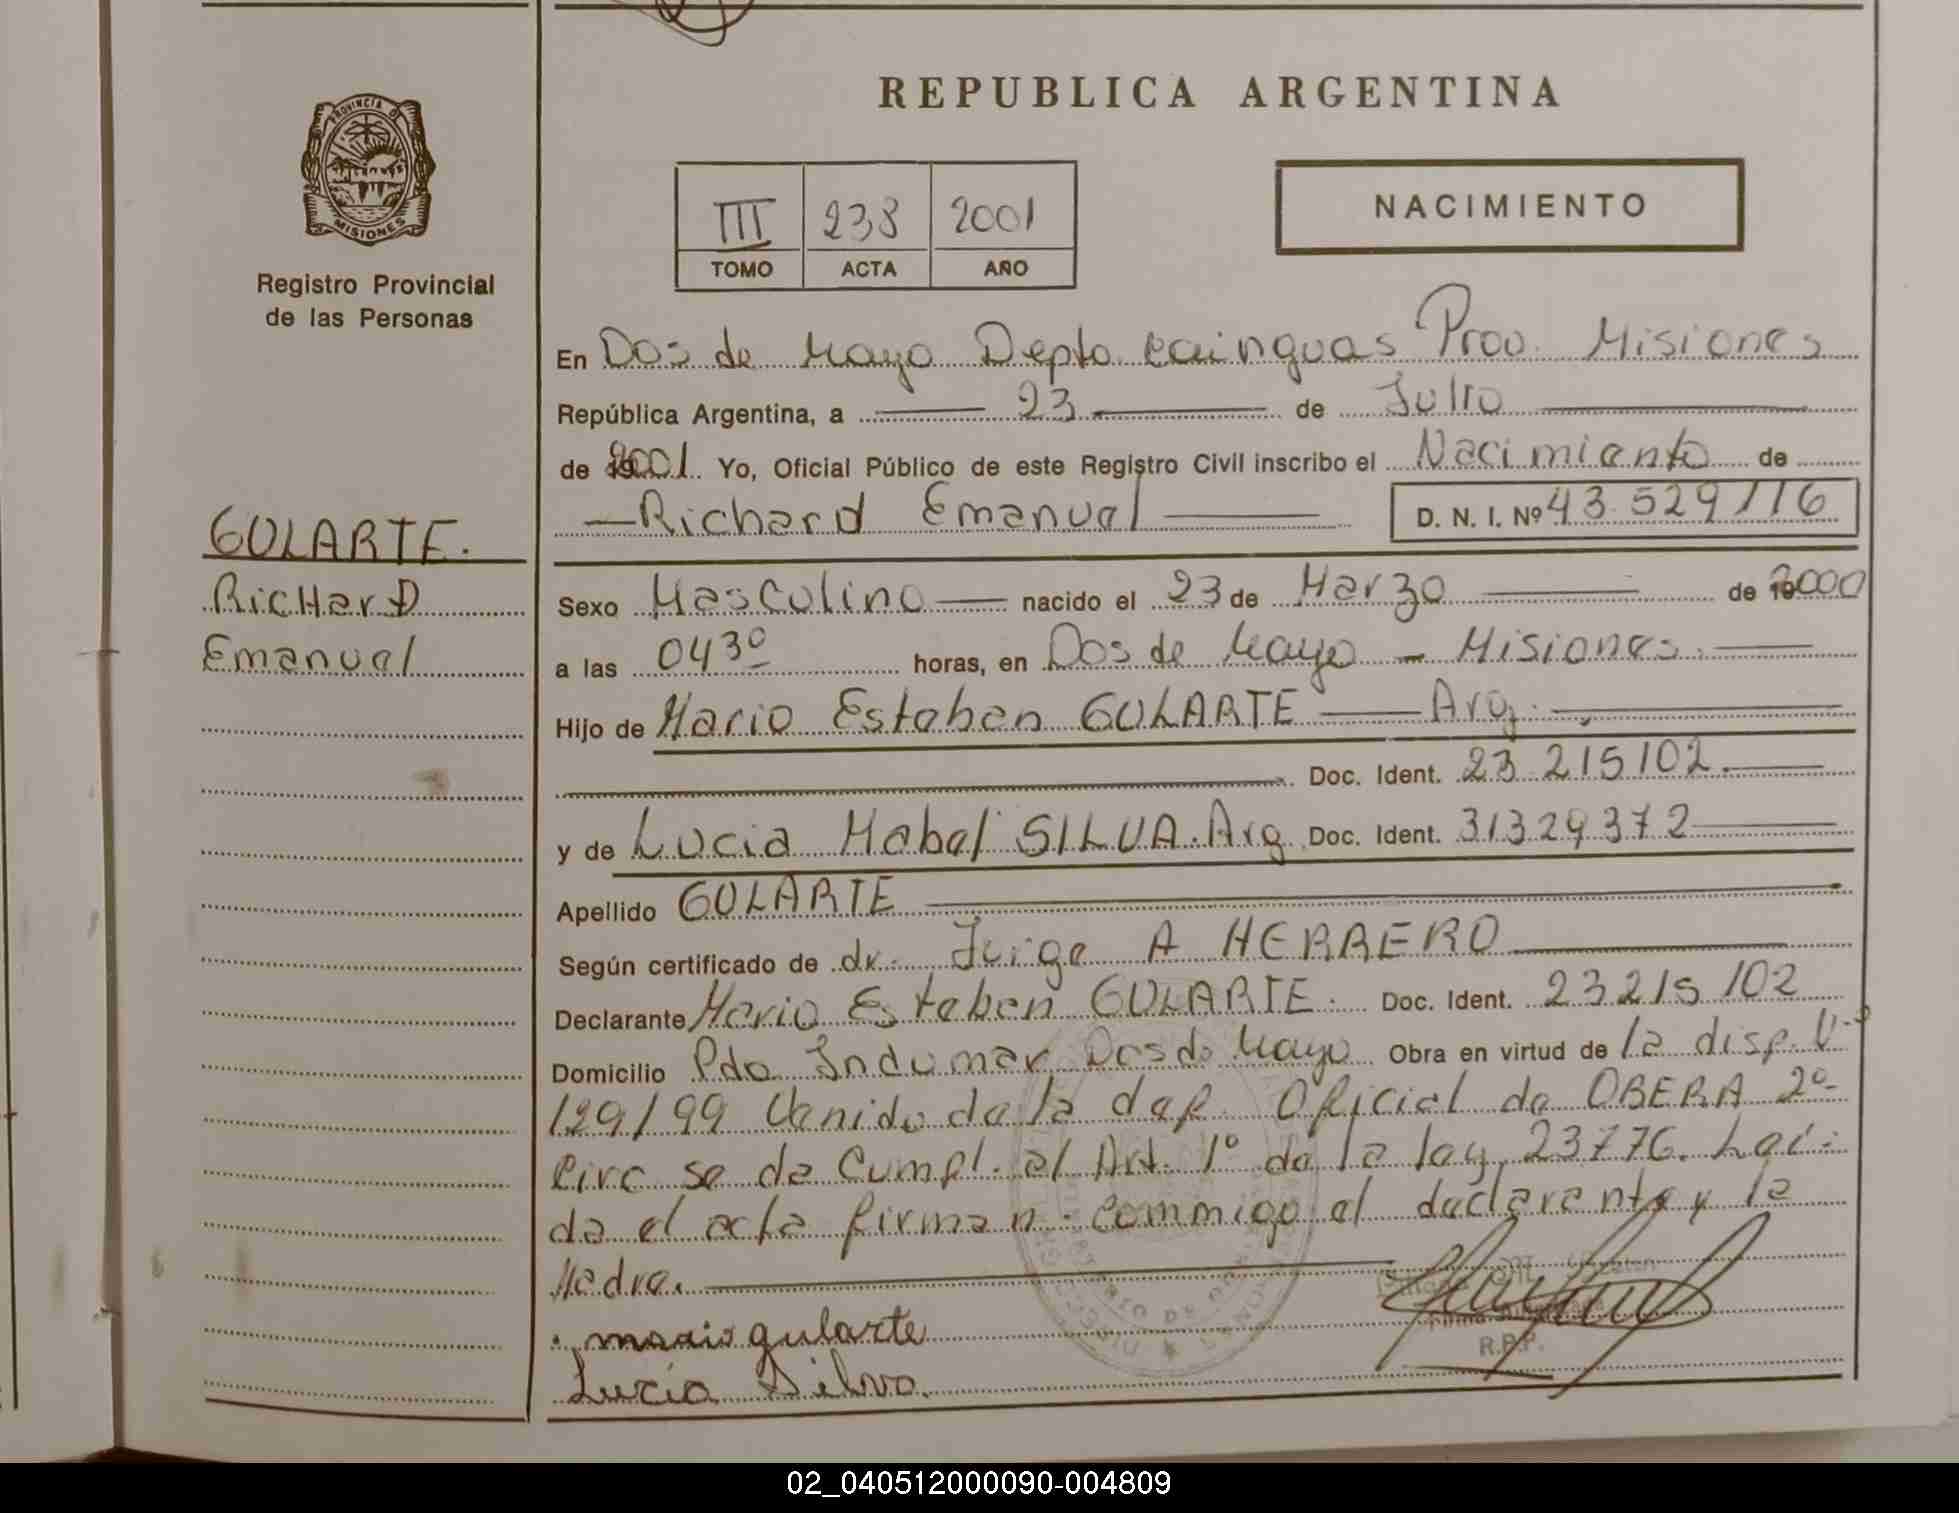 REPUBLICA ARGENTINA
PROVINCIA DE
MISIONES
Registro Provincial
de las Personas
III 238 2001
TOMO ACTA AÑO
NACIMIENTO
GULARTE.
RicHarD
Emanuel
En Dos de Mayo Depto. Cainguas Prov. Misiones
República Argentina, a 23 de Julio
de 2001. Yo, Oficial Público de este Registro Civil inscribo el Nacimiento de
Richard Emanuel D. N. I. Nº 43.529116
Sexo Masculino nacido el 23 de Marzo de 2000
a las 0430 horas, en Dos de Mayo - Misiones.
Hijo de Mario Esteban GULARTE Arg.
Doc. Ident. 23.215102.
y de Lucia Mabel SILVA. Arg. Doc. Ident. 31329372
Apellido GULARTE
Según certificado de dr. Jorge A HERRERO
Declarante Mario Esteban GULARTE. Doc. Ident. 23215102
Domicilio Pdo Indumar Dos de Mayo Obra en virtud de la disp. Nº
129/99 Venido de la del. Oficial de OBERA 2º
Circ se da Cumpl. al Art. 1º de la ley 23776. Leí-
da el acta firman conmigo el declarante y la
Madre.
mario gularte
Lucia Silva.
R.P.P.
02_040512000090-004809